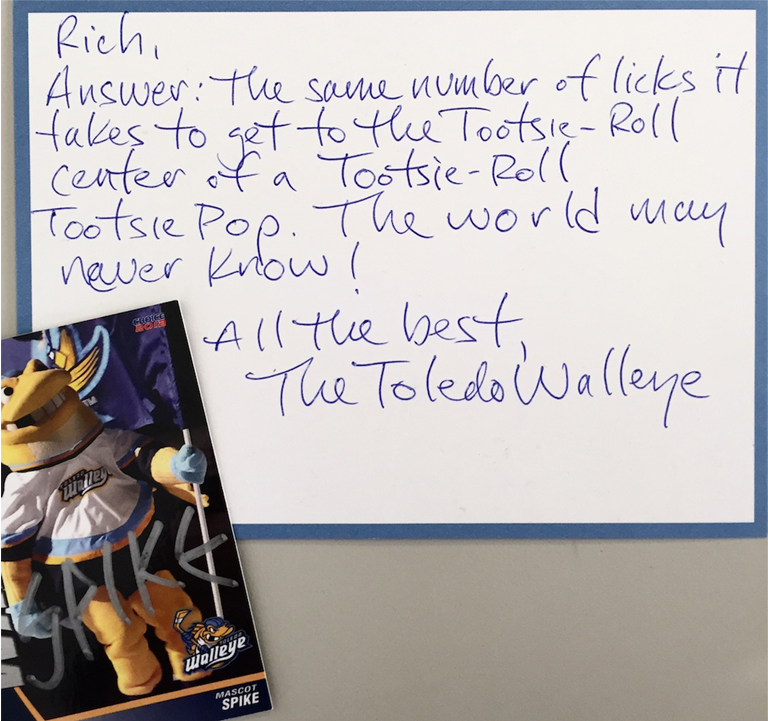 Rich,
Answer: The same number of licks it
takes to get to the Tootsie-Roll
center of a Tootsie-Roll
Tootsie Pop. The world may
never know!
All the best,
The Toledo Walleye
CHOICE
2012
TM
TOLEDO
Walleye
SPIKE
TOLEDO
Walleye
MASCOT
SPIKE